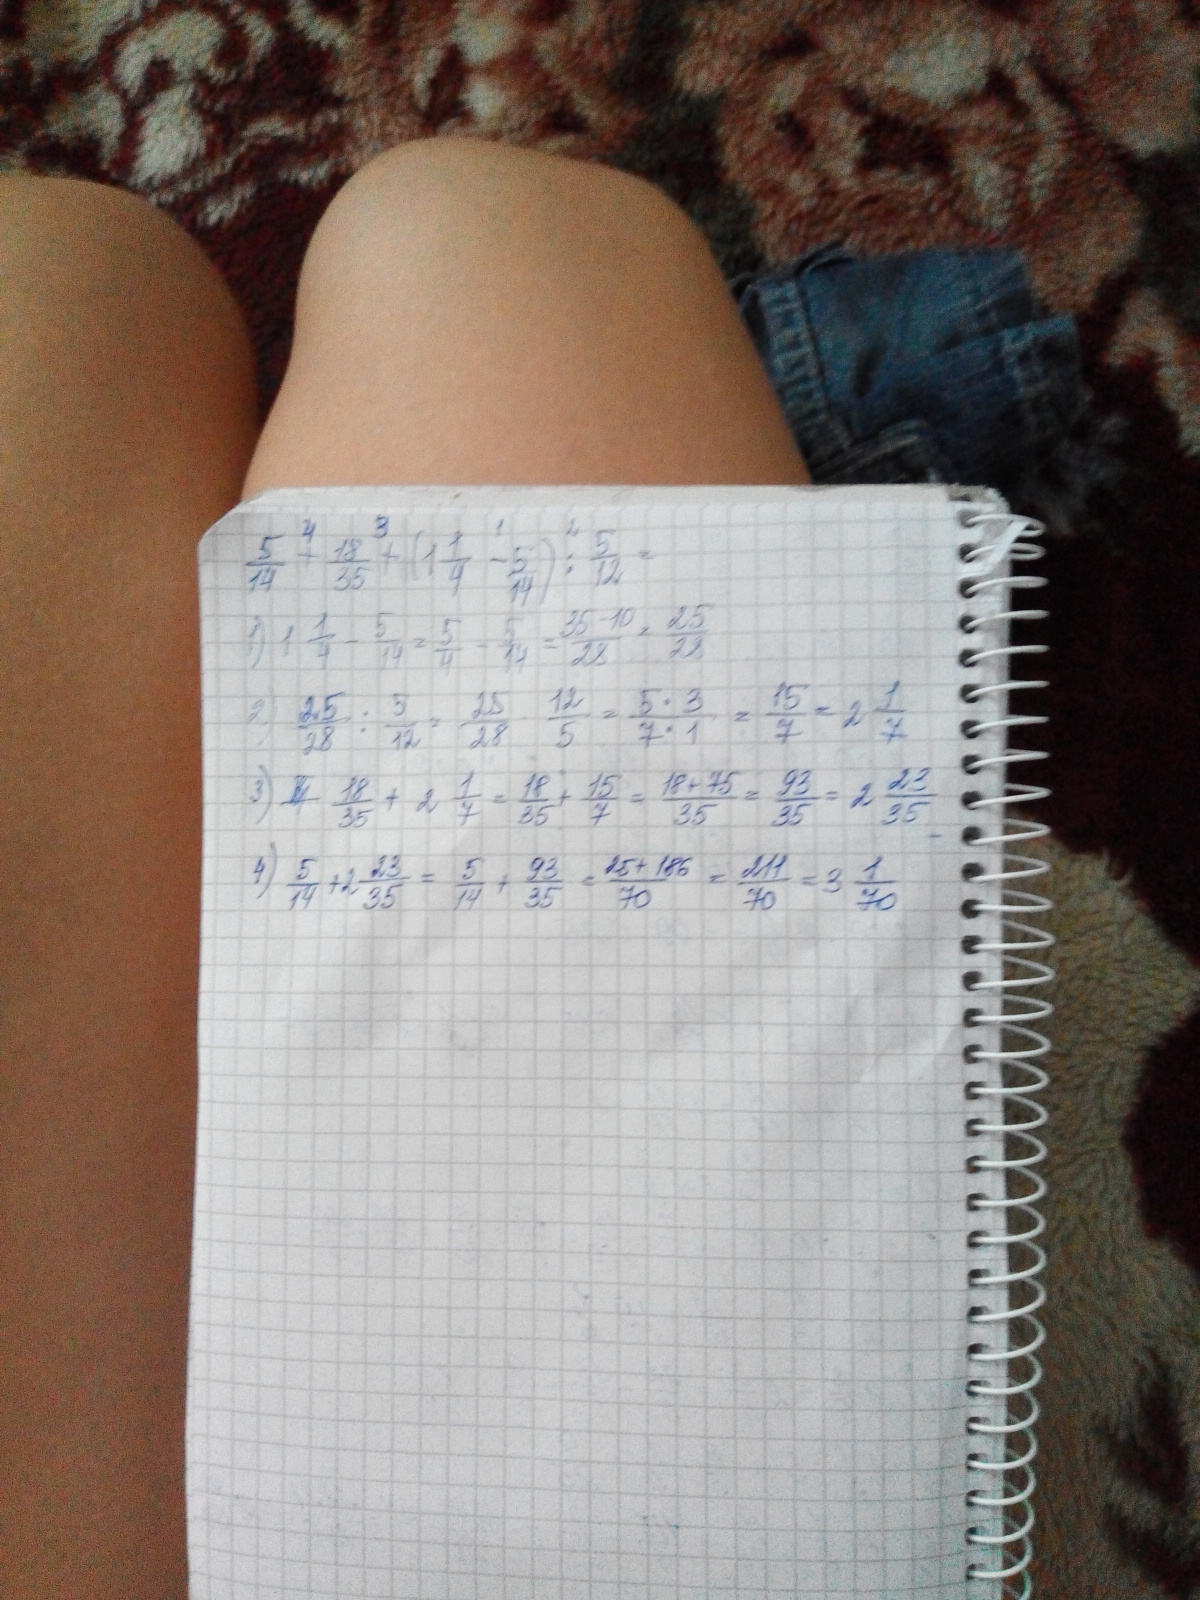 4 3 1 2
5/14 + 18/35 + (1 1/4 - 5/14) : 5/12 =
1) 1 1/4 - 5/14 = 5/4 - 5/14 = 35-10/28 = 25/28
2) 25/28 : 5/12 = 25/28 · 12/5 = 5·3/7·1 = 15/7 = 2 1/7
3) 18/35 + 2 1/7 = 18/35 + 15/7 = 18+75/35 = 93/35 = 2 23/35
4) 5/14 + 2 23/35 = 5/14 + 93/35 = 25+186/70 = 211/70 = 3 1/70